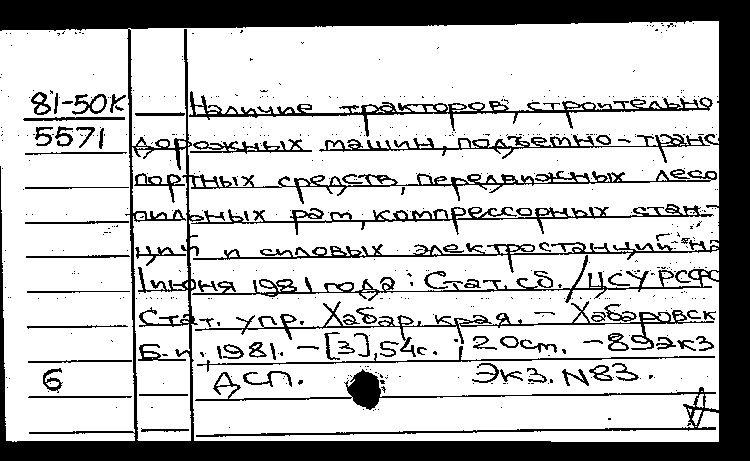 81-50К Наличие тракторов, строительно-
5571 дорожных машин, подъемно-транс
портных средств, передвижных лесо
пильных рам, компрессорных стан-
ций и силовых электростанций на
1 июня 1981 года : Стат. сб. / ЦСУ РСФС
Стат. упр. Хабар. края. - Хабаровск
Б.и., 1981. - [3], 54с. ; 20 см. - 89 экз
6 ДСП. Экз. N83.